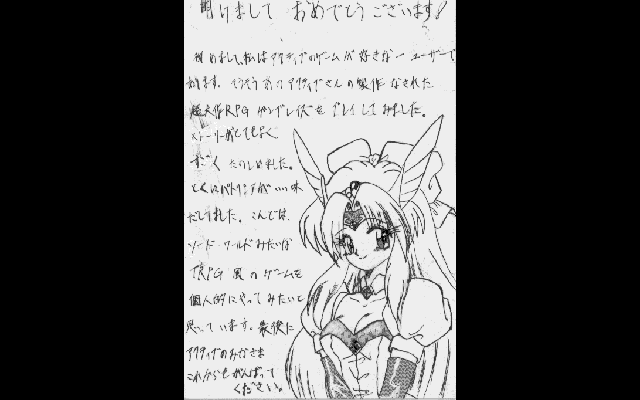 明けまして おめでとうございます!
初めまして、私はアクティブのゲームが好きな一ユーザーで
あります。そうそう アクティブさんの製作なされた
超大作RPG をプレイしてみました。
ストーリーがとてもよく、
すごく たのしめました。
とくに 味
だしてました。こんどは、
ソード・ワールドみたいな
TRPG 異のゲームを
個人的にやってみたいと
思っています。最後に
アクティブのみなさま
これからもがんばって
ください。